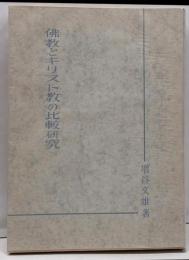 佛教とキリスト教の比較研究
増谷文雄著